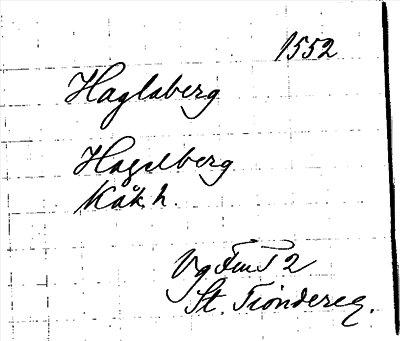 1552
Haglaberg
Hagelberg
Kåk, h.
Vg Fem T 2
St. Tiondereg.